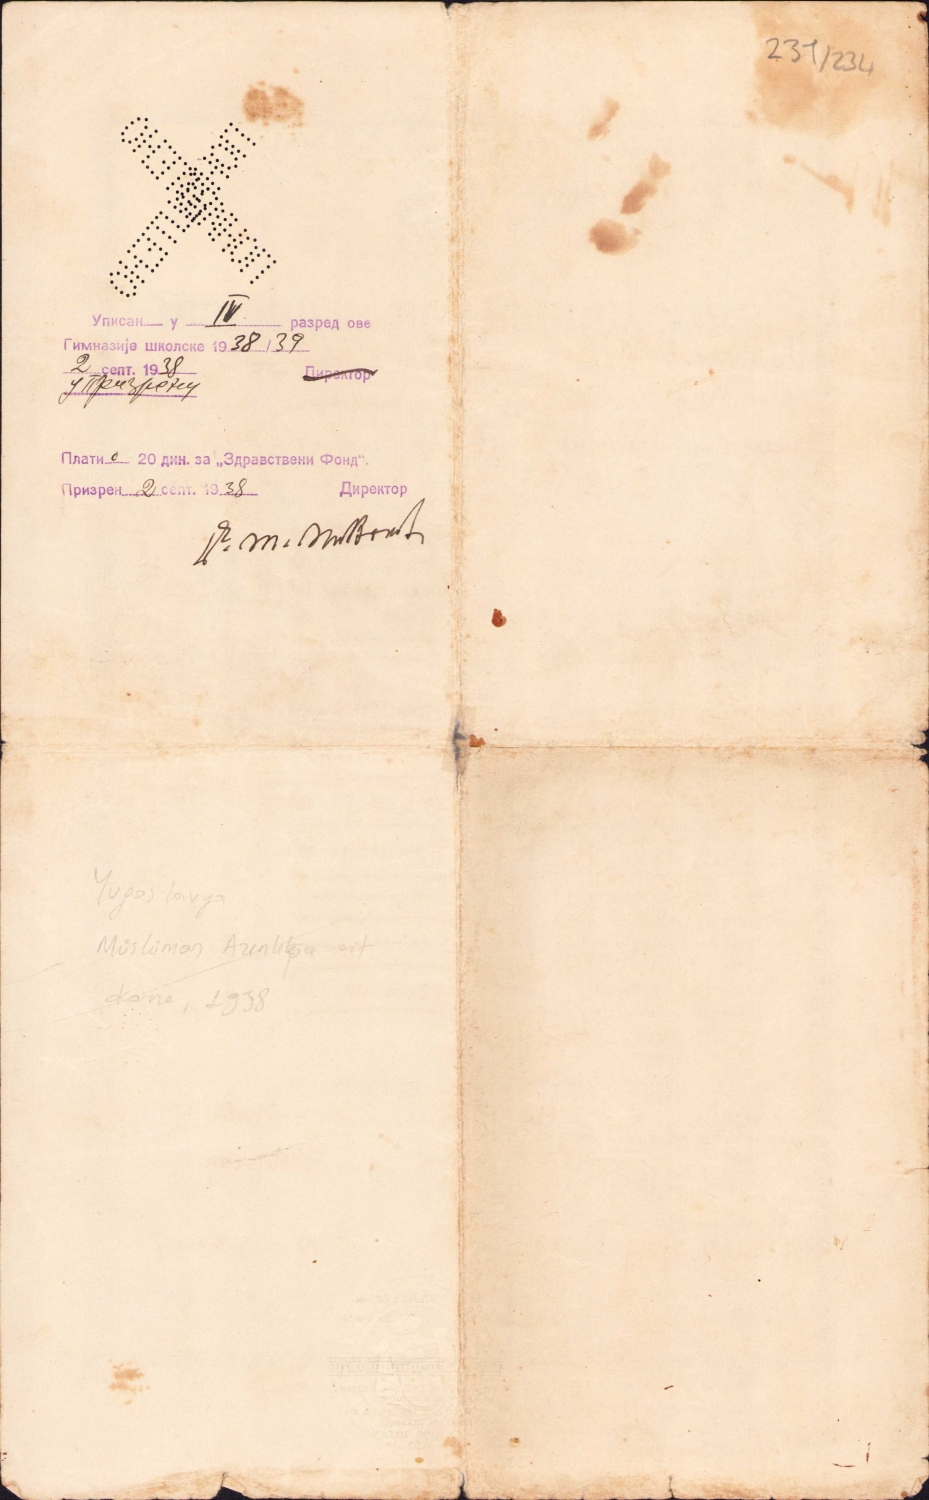 231/234
Уписан у IV разред ове
Гимназије школске 1938/39
2 септ. 1938 Директор
у Призрену
Плати о 20 дин. за „Здравствени Фонд“.
Призрен 2 септ. 1938 Директор
Yugoslavya
Müslüman Azınlığa ait
1938